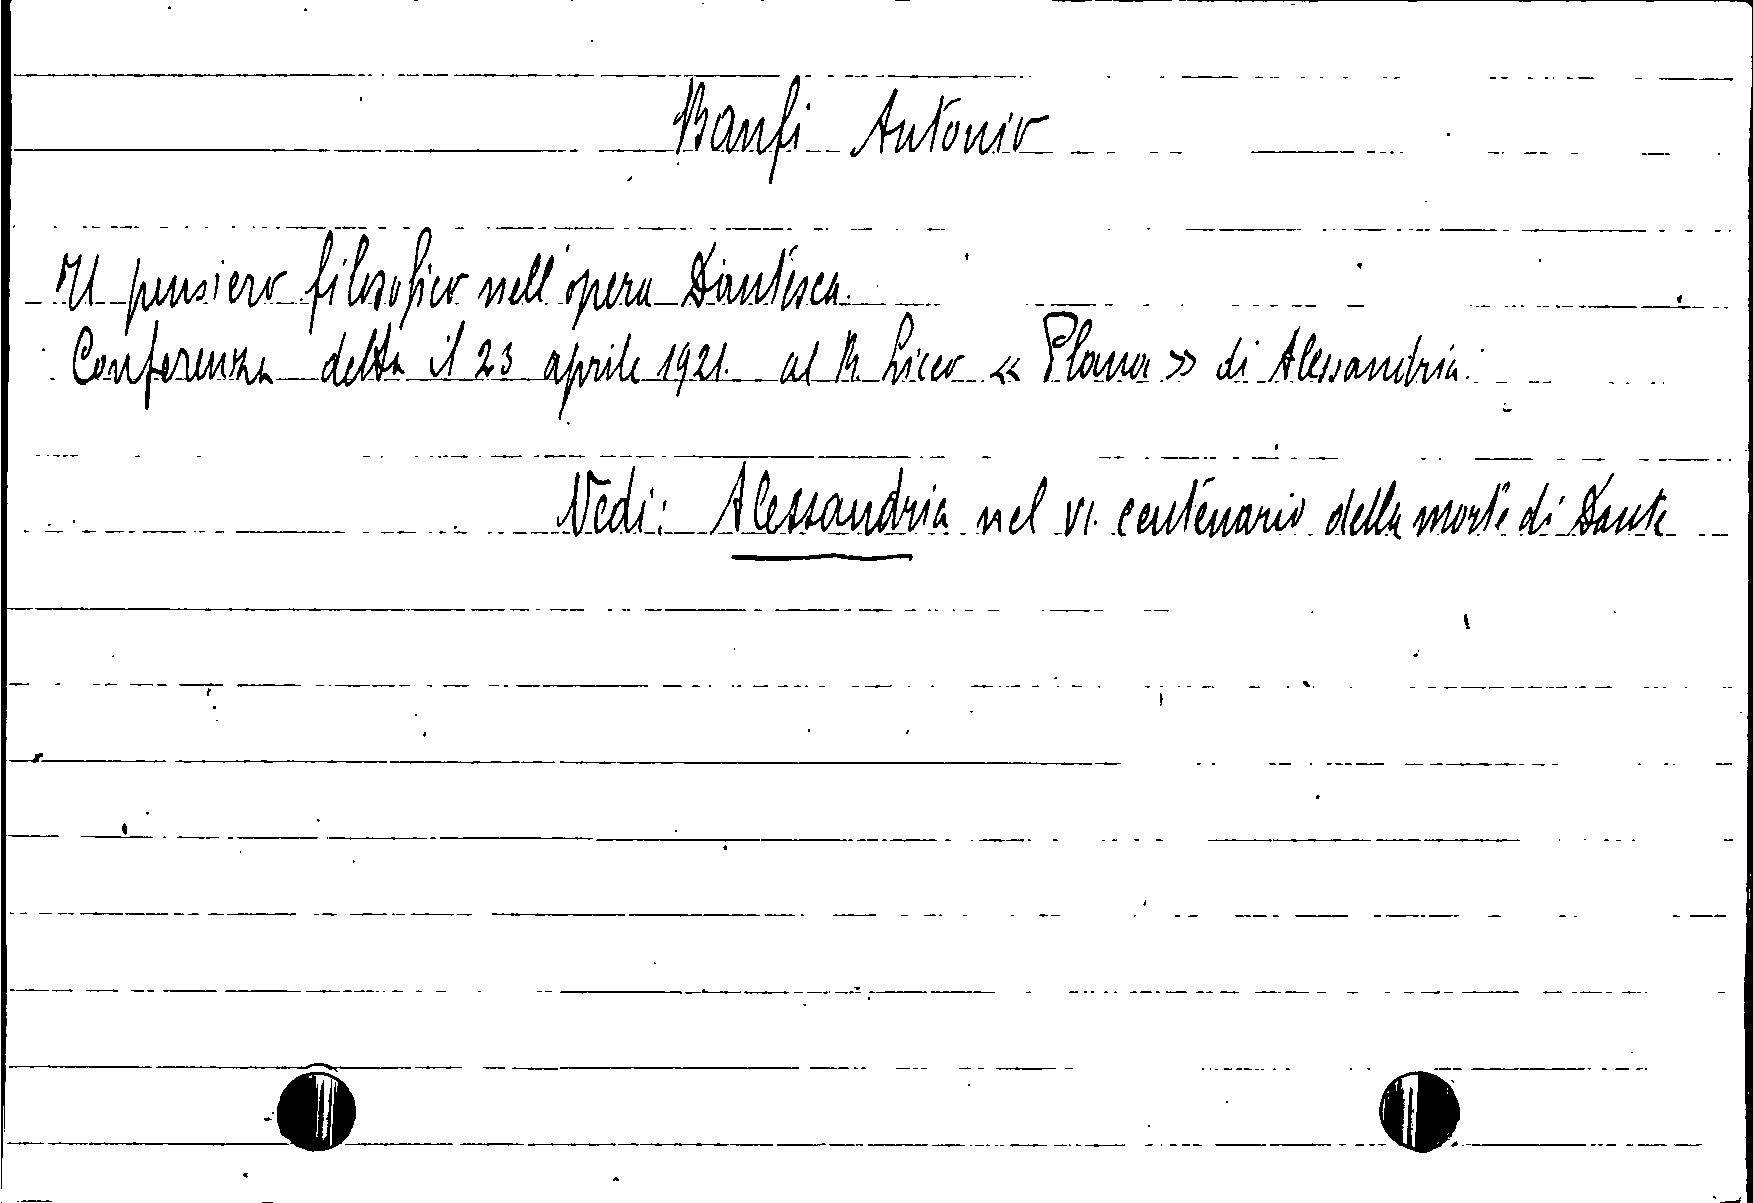 Banfi Antonio
Il pensiero filosofico nell'opera Dantesca.
Conferenza detta il 23 aprile 1921. al R. Liceo « Plana » di Alessandria.
Vedi: Alessandria nel VI. centenario della morte di Dante